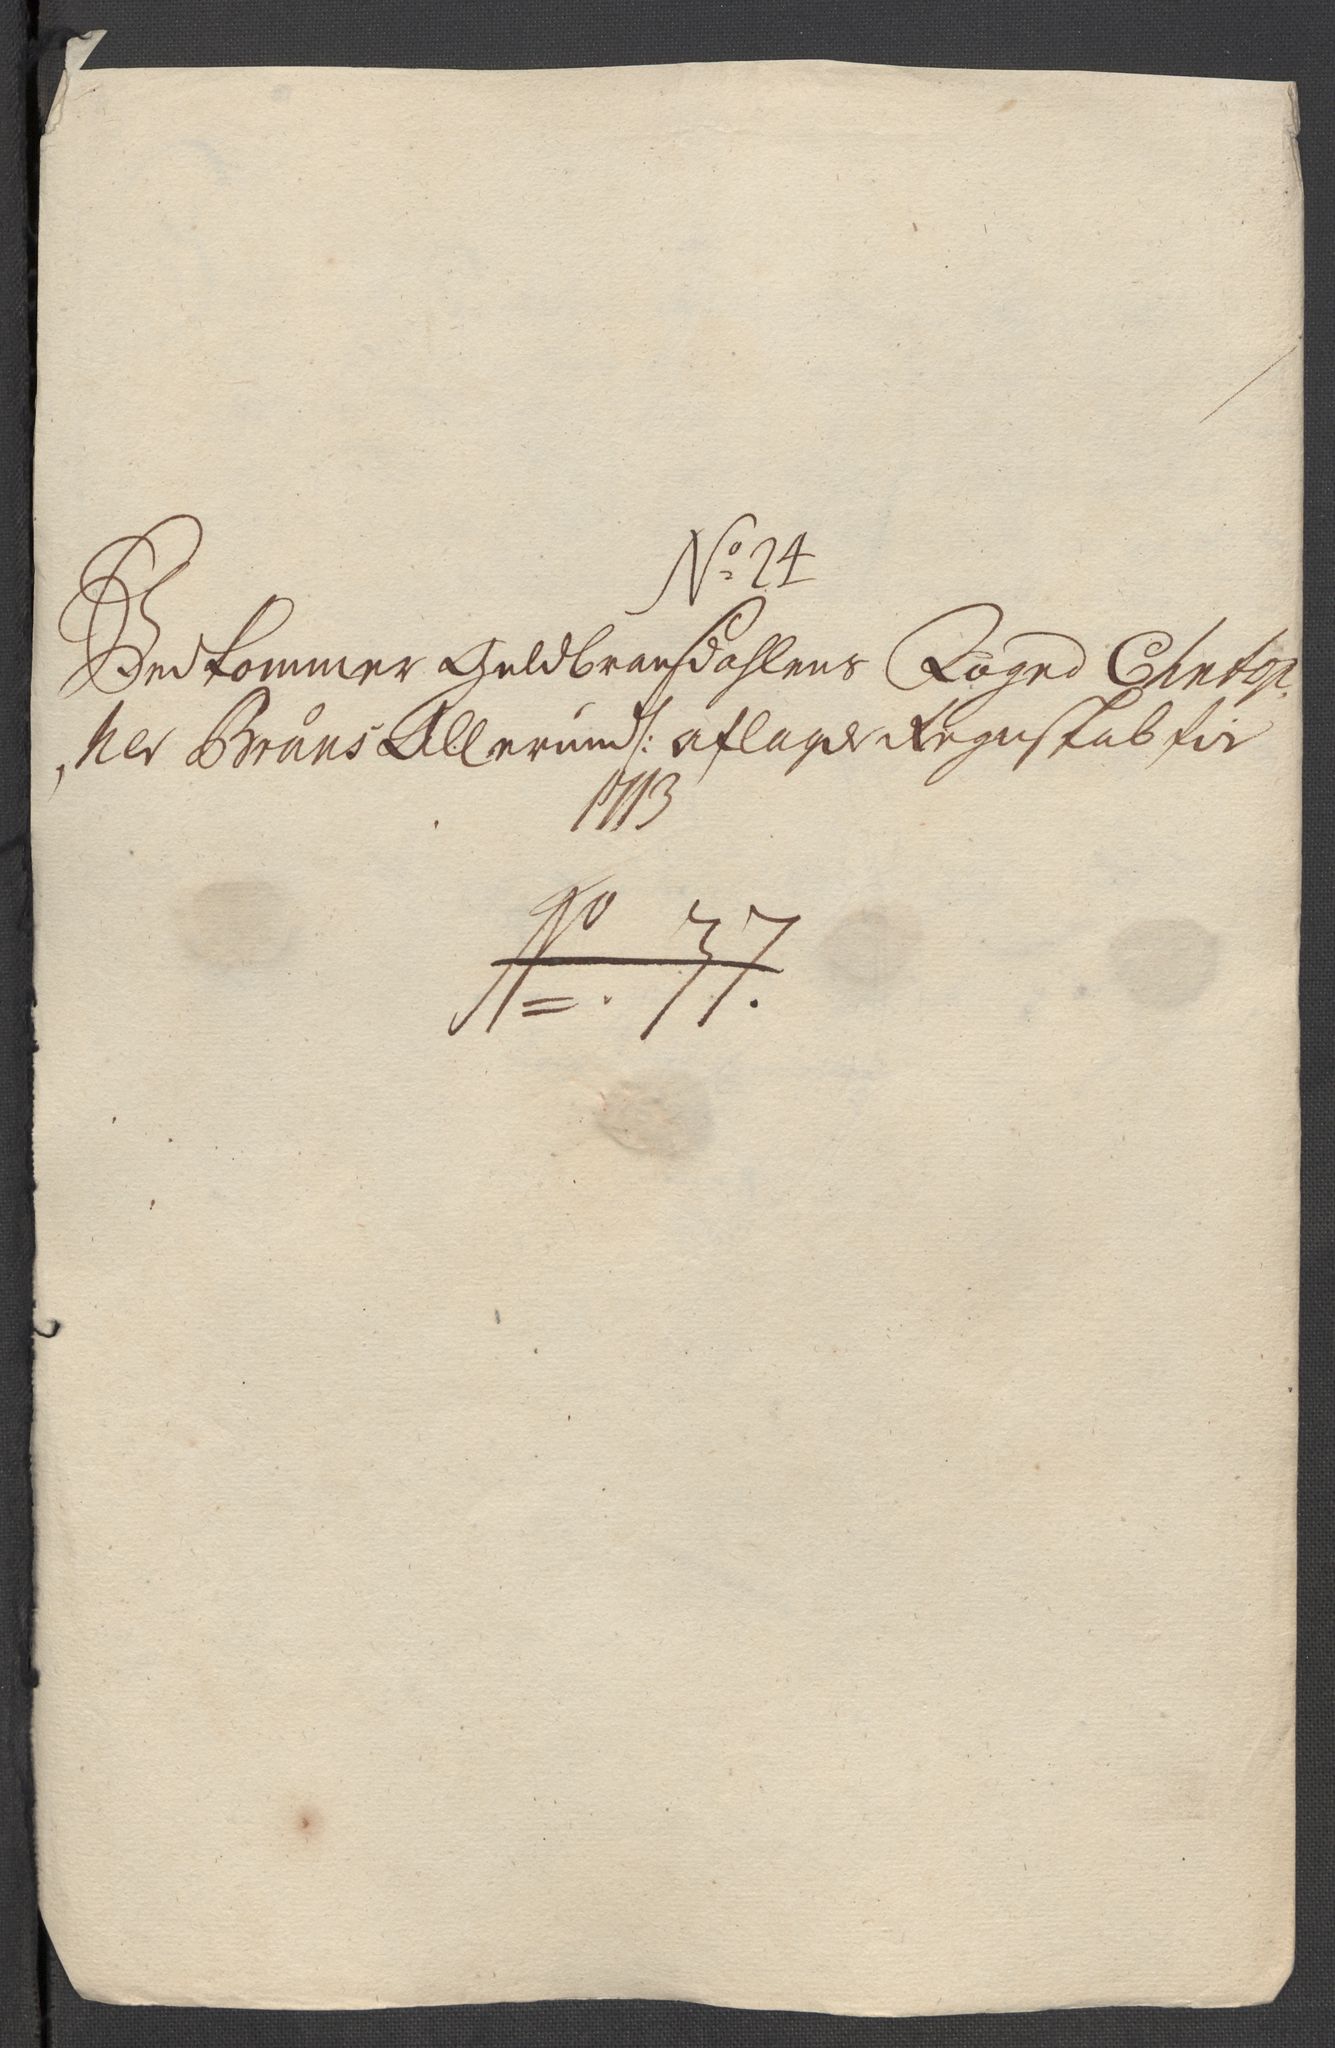 No 24
Vedkommer Guldbransdahlens Foged Christop
her Bråns Allerund: aflagde Regnskab for
1713
No. 37.